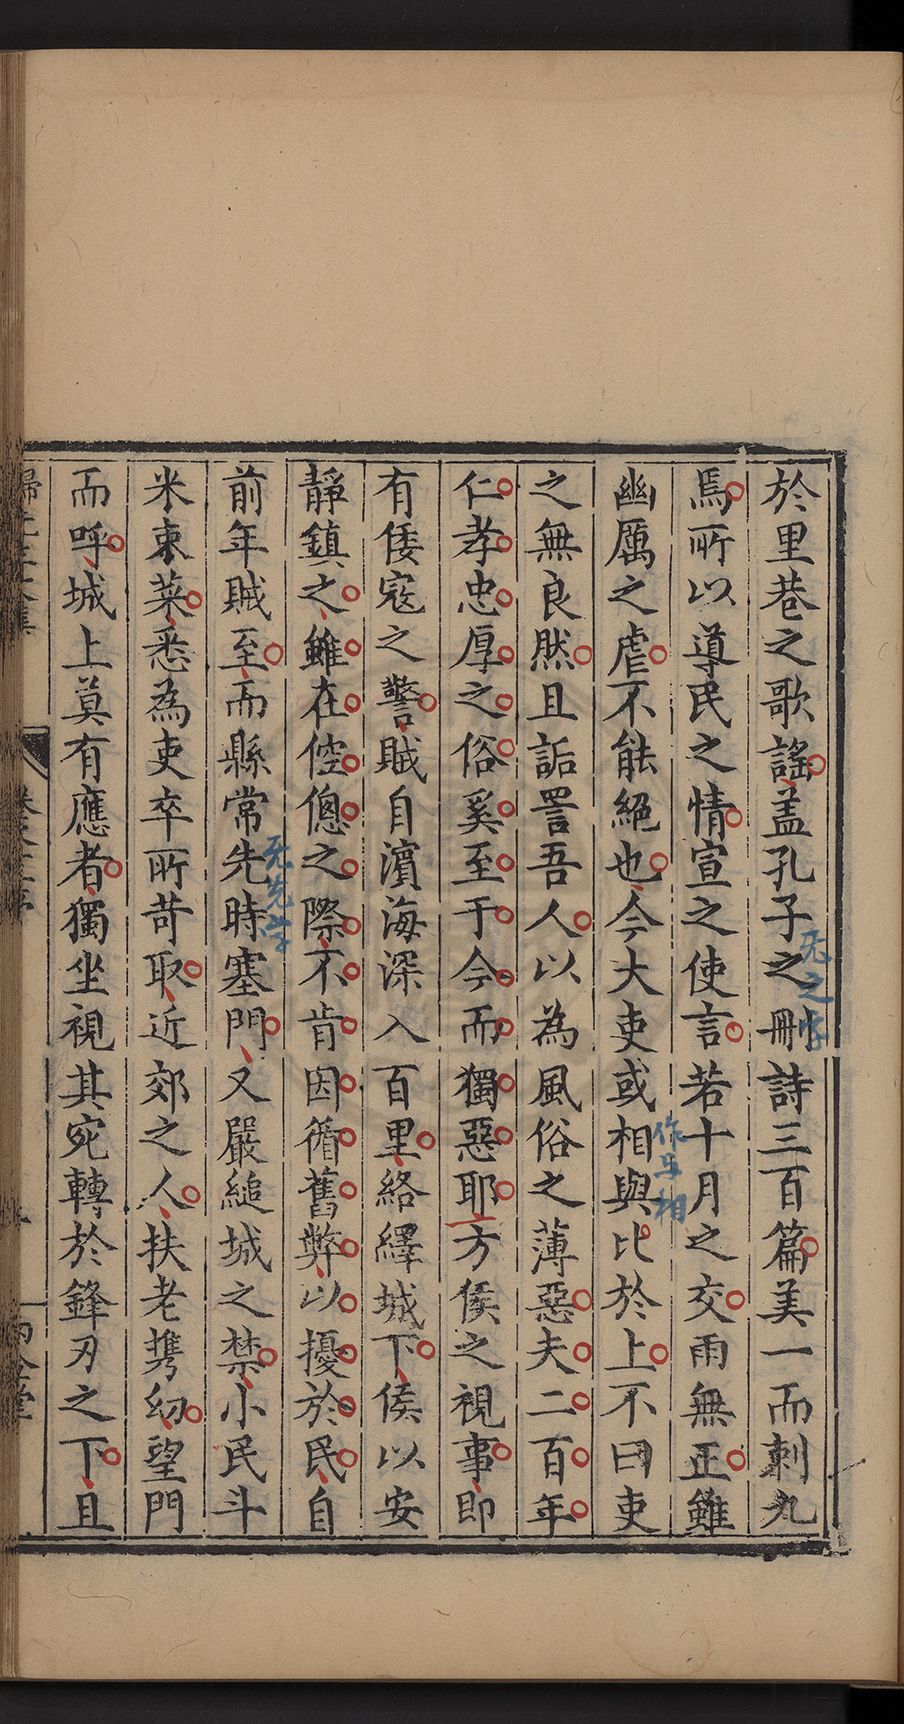 於里巷之歌謠盖孔子之刪詩三百篇美一而刺九
无之字
焉所以導民之情宣之使言若十月之交雨無正雖
作互相
幽厲之虐不能絕也今大吏或相與比於上不曰吏
之無良然且詬詈吾人以為風俗之薄惡夫二百年
仁孝忠厚之俗奚至于今而獨惡耶方侯之視事即
有倭寇之警賊自濱海深入百里絡繹城下侯以安
靜鎮之雖在倥傯之際不肯因循舊弊以擾於民自
前年賊至而縣常先時塞門又嚴縋城之禁小民斗
无先字
米束菜悉為吏卒所苛取近郊之人扶老携幼望門
而呼城上莫有應者獨坐視其宛轉於鋒刃之下且